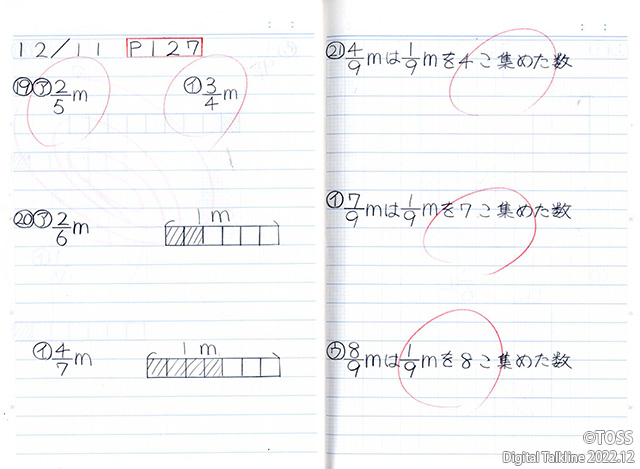 12/11 P127
⑲㋐2/5m ㋑3/4m
⑳㋐2/6m 1m
㋑4/7m 1m
㉑4/9mは1/9mを4こ集めた数
㋑7/9mは1/9mを7こ集めた数
㋒8/9mは1/9mを8こ集めた数
©TOSS
Digital Talkline 2022.12